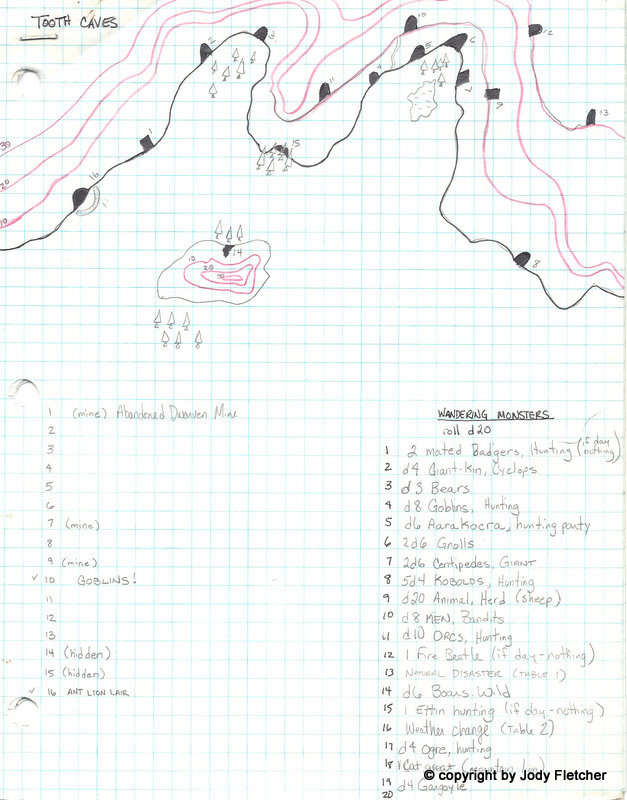 TOOTH CAVES
10
12
2
3
6
5
4
11
7
9
13
1
15
16
30
20
10
8
14
10
20
30
1 (mine) Abandoned Dwarven Mine
2
3
4
5
6
7 (mine)
8
9 (mine)
✓ 10 GOBLINS!
11
12
13
14 (hidden)
15 (hidden)
✓ 16 ANT LION LAIR
WANDERING MONSTERS
roll d20
1 2 mated Badgers, Hunting (if day nothing)
2 d4 Giant-Kin, Cyclops
3 d3 Bears
4 d8 Goblins, Hunting
5 d6 Aarakocra, hunting party
6 2d6 Gnolls
7 2d6 Centipedes, GIANT
8 5d4 KOBOLDS, Hunting
9 d20 Animal, Herd (sheep)
10 d8 MEN, Bandits
11 d10 ORCS, Hunting
12 1 Fire Beetle (if day - nothing)
13 NATURAL DISASTER (TABLE 1)
14 d6 Boars, Wild
15 1 Ettin hunting (if day - nothing)
16 Weather change (Table 2)
17 d4 Ogre, hunting
18 1 Cat great (mountain lion)
19 d4 Gargoyle
20
© copyright by Jody Fletcher